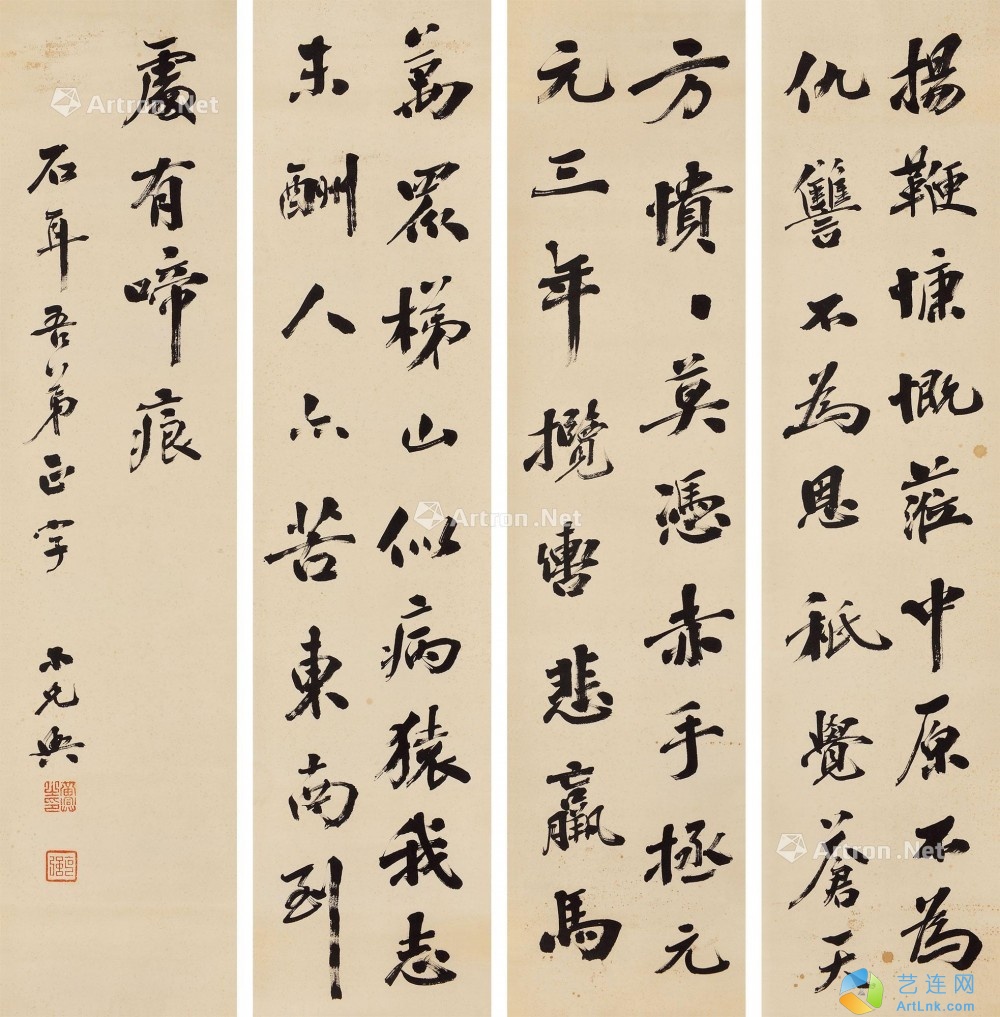 揚鞭慷慨蒞中原不為
仇讐不為恩祇覺蒼天
方憒、莫憑赤手拯元
元三年攬轡悲羸馬
萬眾梯山似病猿我志
未酬人亦苦東南到
處有啼痕
石耳吾弟正字 小兄興
黃興之印
Artron.Net
Artron.Net
Artron.Net
艺连网
ArtLnk.com